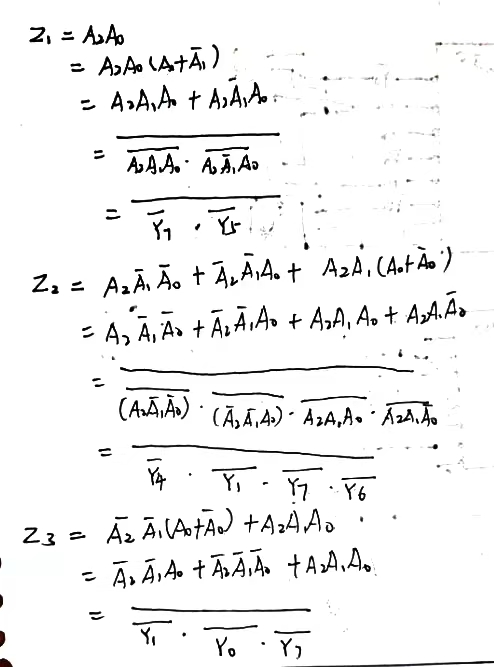 Z₁ = A₂A₀
= A₂A₀(A₁+A̅₁)
= A₂A₁A₀ + A₂A̅₁A₀
= \overline{\overline{A₂A₁A₀} · \overline{A₂A̅₁A₀}}
= \overline{\overline{Y₇} · \overline{Y₅}}
Z₂ = A₂A̅₁A̅₀ + A̅₂A̅₁A₀ + A₂A₁(A₀+A̅₀)
= A₂A̅₁A̅₀ + A̅₂A̅₁A₀ + A₂A₁A₀ + A₂A₁A̅₀
= \overline{\overline{(A₂A̅₁A̅₀)} · \overline{(A̅₂A̅₁A₀)} · \overline{A₂A₁A₀} · \overline{A₂A₁A̅₀}}
= \overline{\overline{Y₄} · \overline{Y₁} · \overline{Y₇} · \overline{Y₆}}
Z₃ = A̅₂A̅₁(A₀+A̅₀) + A₂A₁A₀
= A̅₂A̅₁A₀ + A̅₂A̅₁A̅₀ + A₂A₁A₀
= \overline{\overline{Y₁} · \overline{Y₀} · \overline{Y₇}}